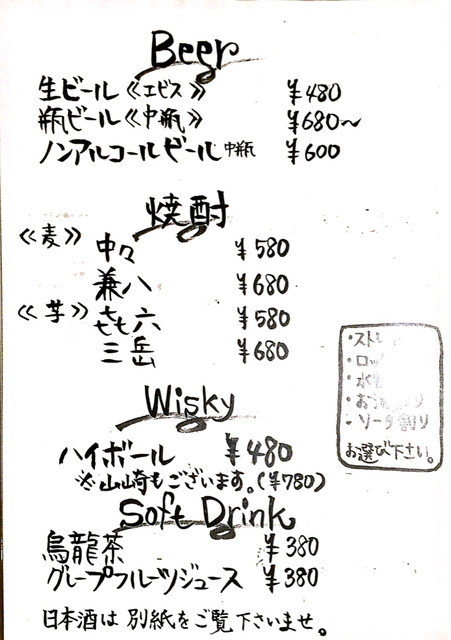 Beer
生ビール《エビス》 ¥480
瓶ビール《中瓶》 ¥680〜
ノンアルコールビール 中瓶 ¥600
焼酎
《麦》
中々 ¥580
兼八 ¥680
《芋》
㐂六 ¥580
三岳 ¥680
・ソーダ割り
お選び下さい。
Wisky
ハイボール ¥480
※山崎もございます。(¥780)
Soft Drink
烏龍茶 ¥380
グレープフルーツジュース ¥380
日本酒は 別紙をご覧下さいませ。